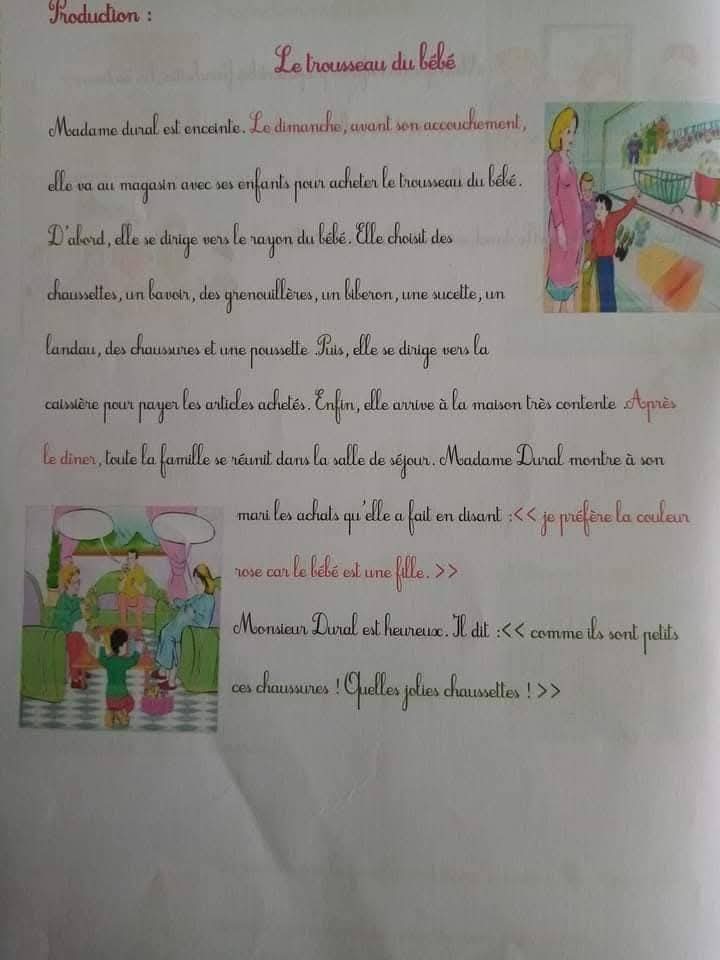 Production :
Le trousseau du bébé
Madame dural est enceinte. Le dimanche, avant son accouchement,
elle va au magasin avec ses enfants pour acheter le trousseau du bébé.
D'abord, elle se dirige vers le rayon du bébé. Elle choisit des
chaussettes, un bavoir, des grenouillères, un biberon, une sucette, un
landau, des chaussures et une poussette .Puis, elle se dirige vers la
caissière pour payer les articles achetés. Enfin, elle arrive à la maison très contente .Après
le dîner, toute la famille se réunit dans la salle de séjour. Madame Dural montre à son
mari les achats qu'elle a fait en disant :<< je préfère la couleur
rose car le bébé est une fille. >>
Monsieur Dural est heureux. Il dit :<< comme ils sont petits
ces chaussures ! Quelles jolies chaussettes ! >>